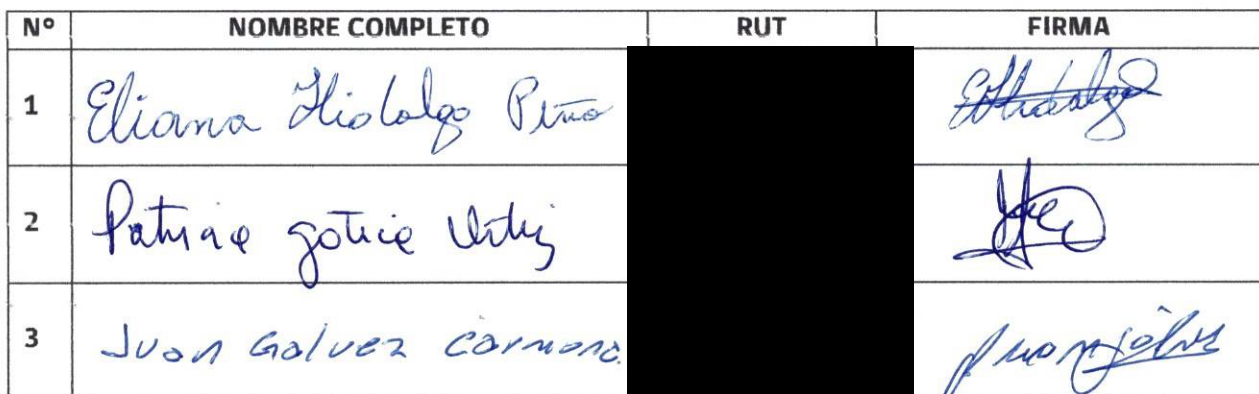 Nº NOMBRE COMPLETO RUT FIRMA
1 Eliana Hidalgo Pino EHidalgo
2 Patricia gotica
3 Juan Galvez Carmona Juan gálvez